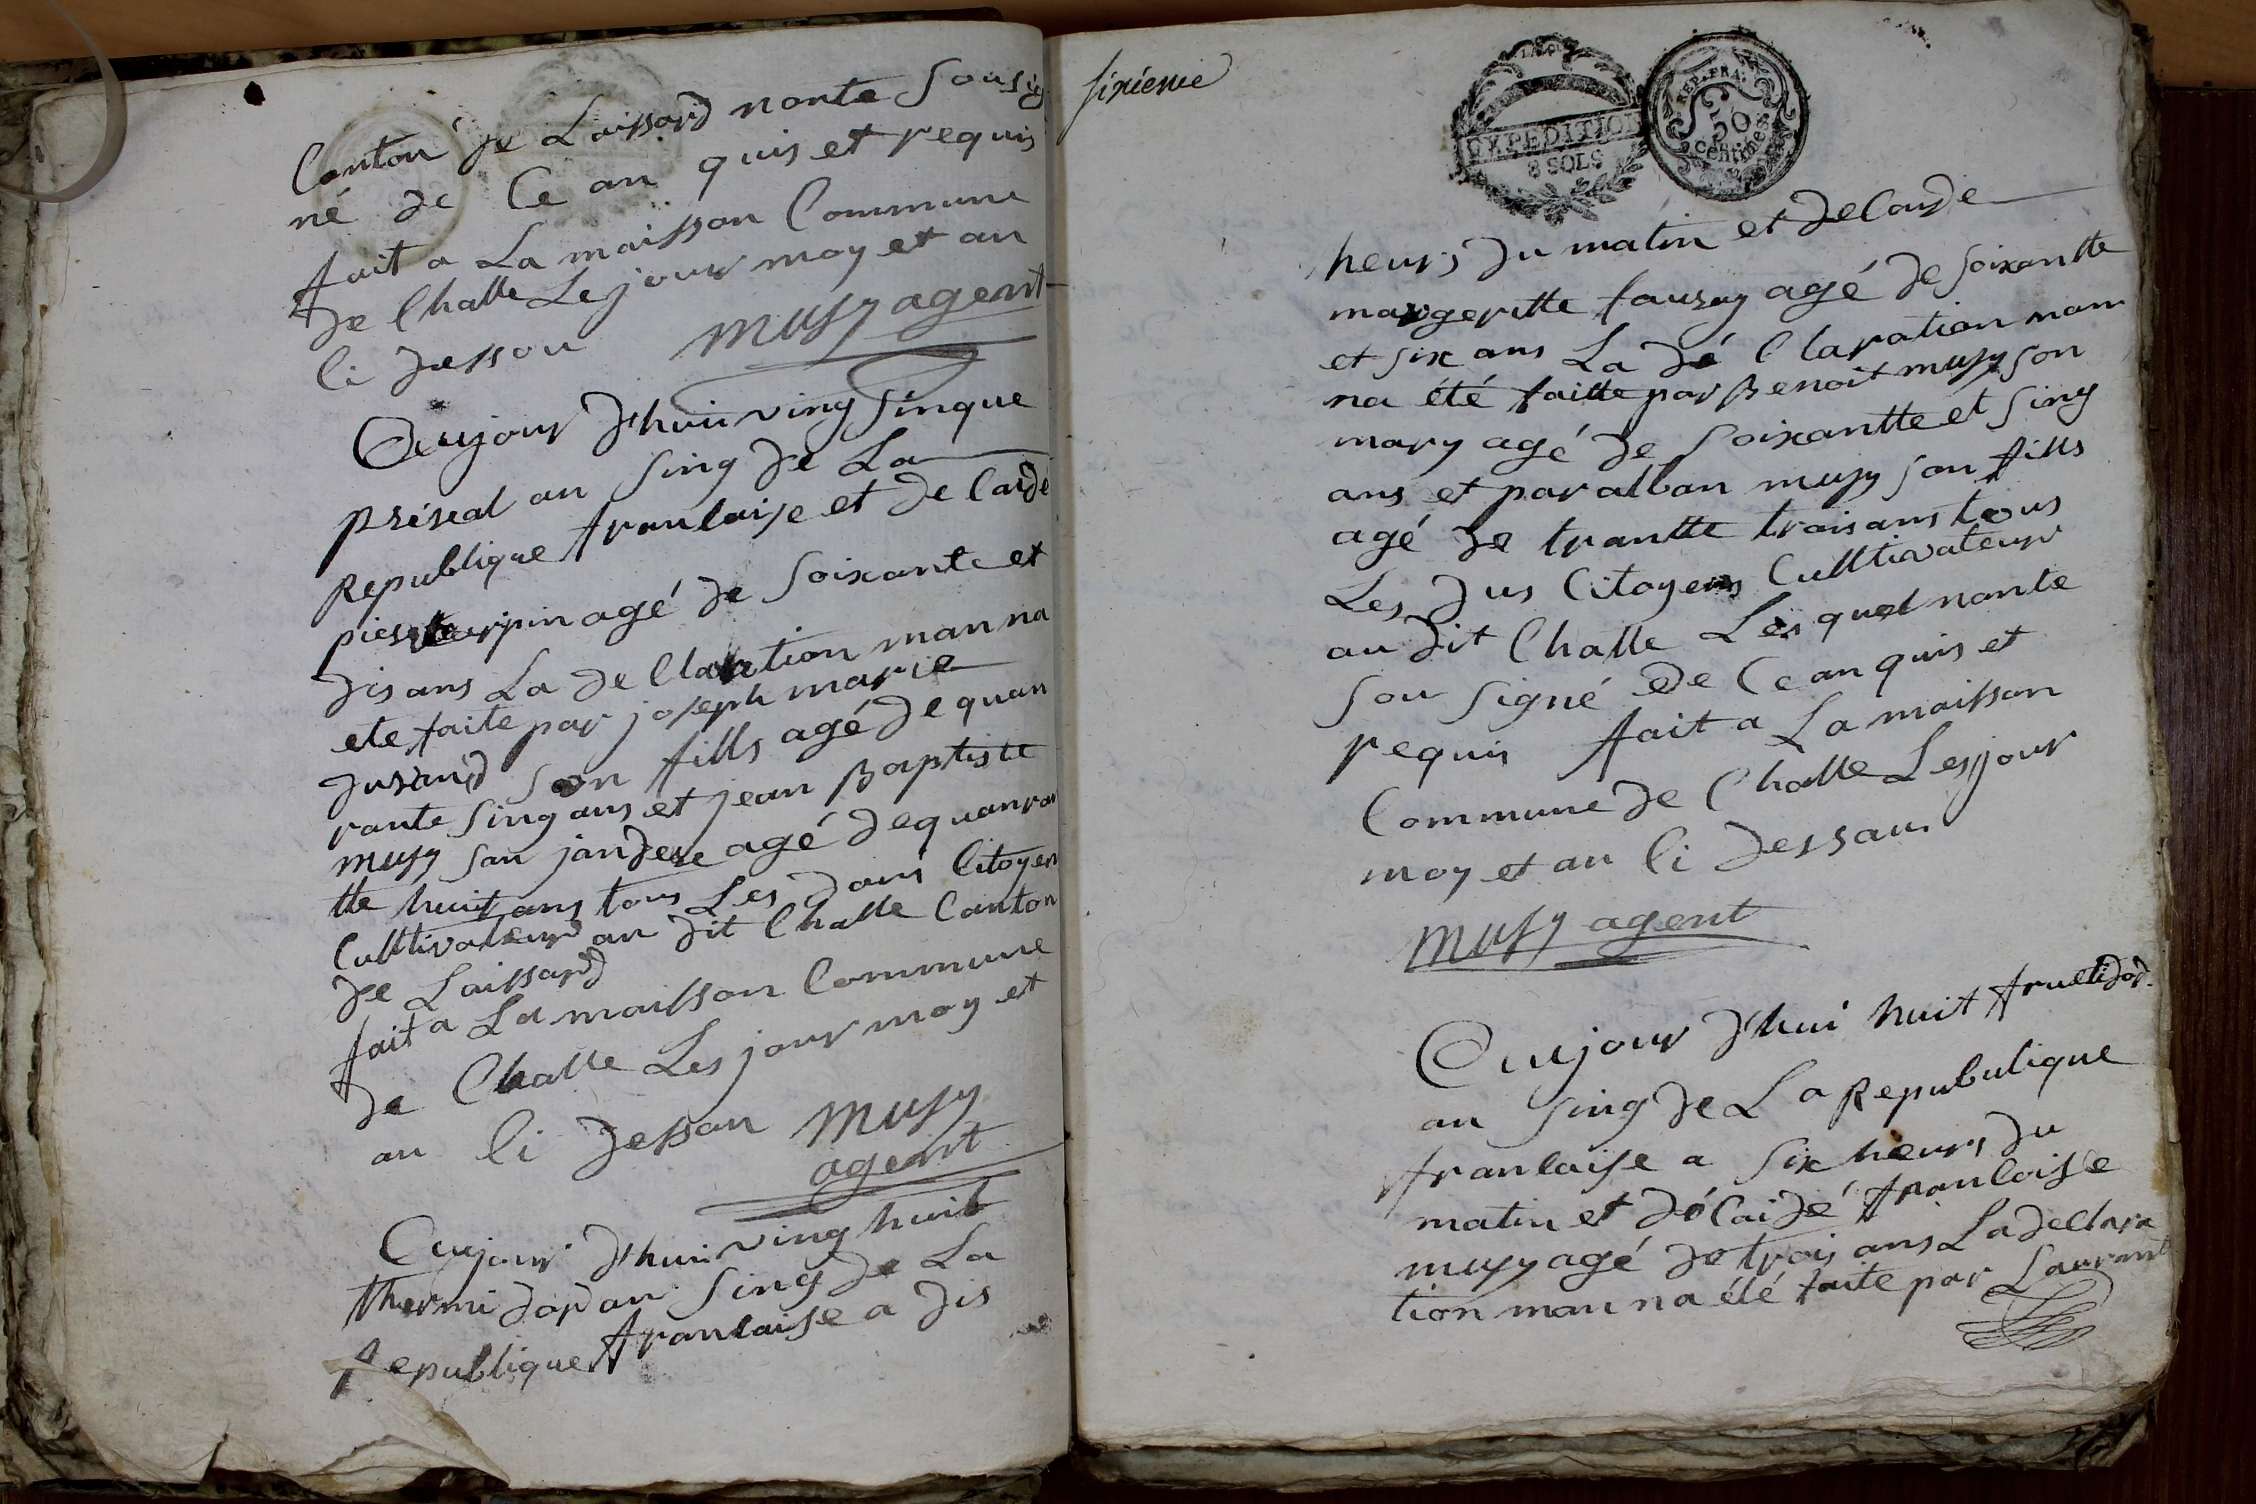 Canton de Laissard nonte sousig
né de Ce an quis et requis
fait a La maisson Commune
de Challe Le jour moy et an
Ci dessou musy agent
Aujour d'huii ving sinque
prérial an sing de La
Republique francaise et de Caidé
piere turpin agé de soixante et
dis ans La de Claration man na
ete faite par joseph marie
durand son fills agé de quan
rante sing ans et jean Baptiste
musy san jandere agé de quanran
tte huit ans tous Les dous Citoyen
Culltivateur au dit Challe Canton
de Laissard
fait a La maisson Commune
de Challe Les jour moy et
an Ci dessou musy
agent
Aujour d'hui ving huit
thermi dor an sing de La
Republique francaise a dis
sixieme
EXPEDITION
8 SOLS
REP. FRA.
50
Centimes
heurs du matin et de Caide
margeritte fauray agé de soixantte
et six ans La dé Claration mam
na été faitte par Benoit musy son
mary agé de soixantte et sing
ans et par alban musy son fills
agé de trantte trois ans tous
Les dus Citoyens Culltivateur
au dit Challe Les quel nonte
sou signé de Ce an quis et
requis fait a La maisson
Commune de Challe Les jour
moy et an Ci dessau
musy agent
Aujour d'hui huit fructidor
an sing de La Republique
francaise a six heurs du
matin et dé Caidé francoise
musy agé de trois ans La declara
tion man na été faite par Laurant